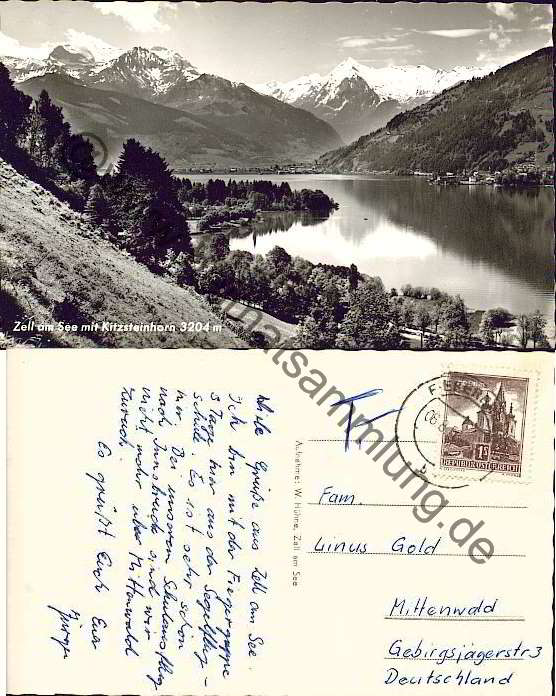 Zell am See mit Kitzsteinhorn 3204 m
Viele Grüße aus Zell am See.
Ich bin mit der Fliegergruppe
3 Tage hier auf der Segelflug-
schule. Es ist sehr schön
hier. Bei unserem Schulausflug
nach Innsbruck sind wir
nicht mehr über Mittenwald
zurück.
Es grüßt Euch Euer
Jürgen
Aufnahme: W. Hühne, Zell am See
Fam.
Linus Gold
Mittenwald
Gebirgsjägerstr 3
Deutschland
REPUBLIK ÖSTERREICH
matsammlung.de